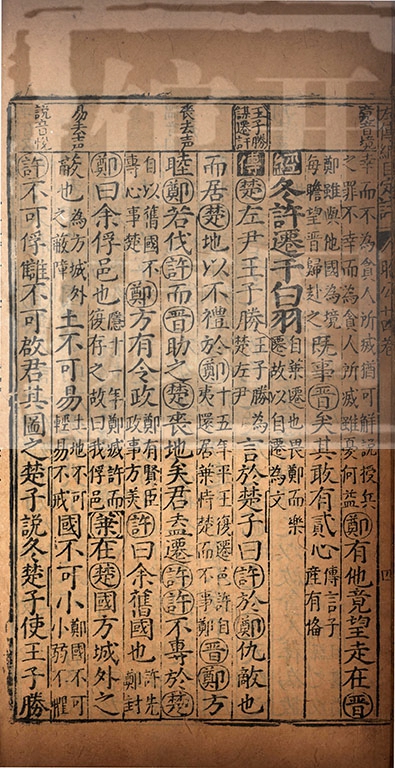 竟音境
王子勝
謀遷許
喪去声
易去声
說音悅
幸而不為貪人所滅猶可解說授兵
之罪不幸而為貪人所滅雖憂何益
鄭有他竟望走在晉
鄭雖與他國為境
每瞻望晉歸赴之
既事晉矣其敢有貳心
傳言子
產有俻
經冬許遷于白羽
自葉遷也畏鄭而樂
遷故以自遷為文
傳楚左尹王子勝
王子勝為
楚左尹
言於楚子曰許於鄭仇敵也
而居楚地以不禮於鄭
十五年平王復遷邑許自
夷還居葉恃楚而不事鄭
晉鄭方
睦鄭若伐許而晉助之楚喪地矣君盍遷許許不專於楚
自以舊國不
專心事楚
鄭方有令政
鄭有賢臣
政事方美
許曰余舊國也
許先
鄭封
鄭曰余俘邑也
隱十一年鄭滅許而
復存之故曰我俘邑
葉在楚國方城外之
蔽也
為方城外
之蔽障
土不可易
土地不可
輕易不戒
國不可小
鄭國不可
小弱不懼
許不可俘讎不可啟君其圖之楚子說冬楚子使王子勝